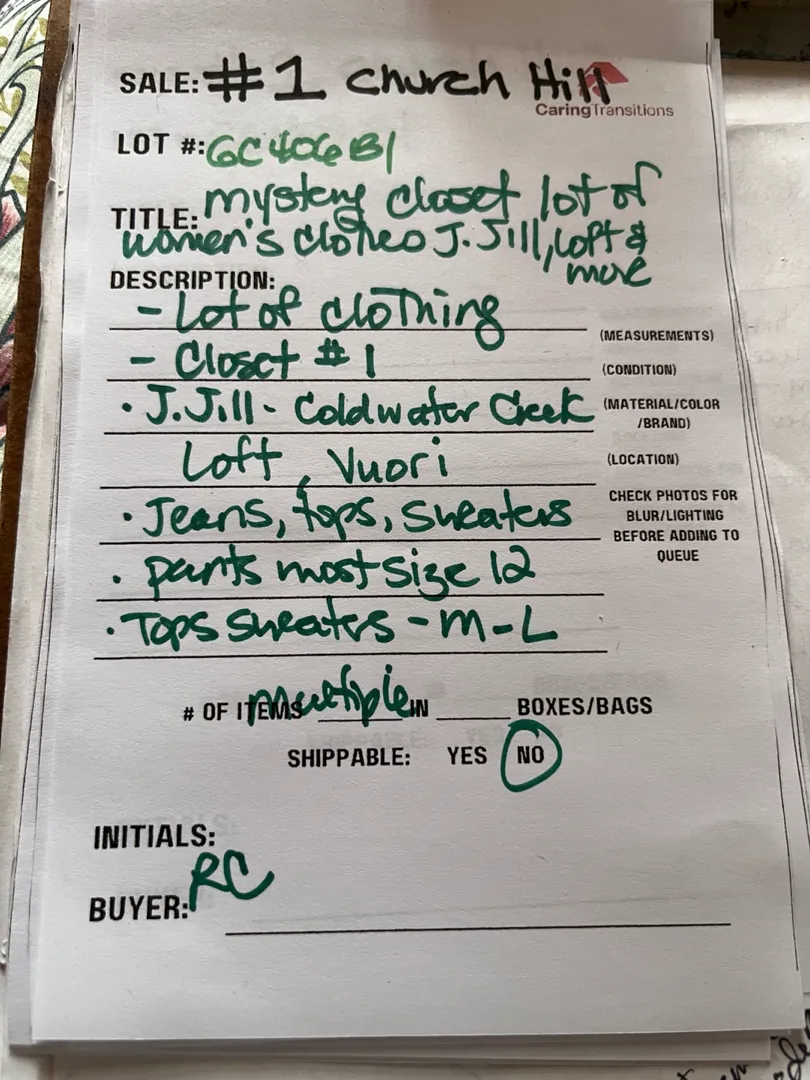 SALE: #1 Church Hill
CaringTransitions
LOT #: GC406B1
TITLE: mystery closet lot of
women's clothes J.Jill, Loft &
more
DESCRIPTION:
- Lot of clothing
(MEASUREMENTS)
- Closet #1
(CONDITION)
• J.Jill - Coldwater Creek
(MATERIAL/COLOR
/BRAND)
Loft, Vuori
(LOCATION)
• Jeans, tops, sweaters
CHECK PHOTOS FOR
BLUR/LIGHTING
BEFORE ADDING TO
QUEUE
• pants most size 12
• Tops sweaters - M-L
# OF ITEMS multiple IN ______ BOXES/BAGS
SHIPPABLE: YES NO
INITIALS:
RC
BUYER: